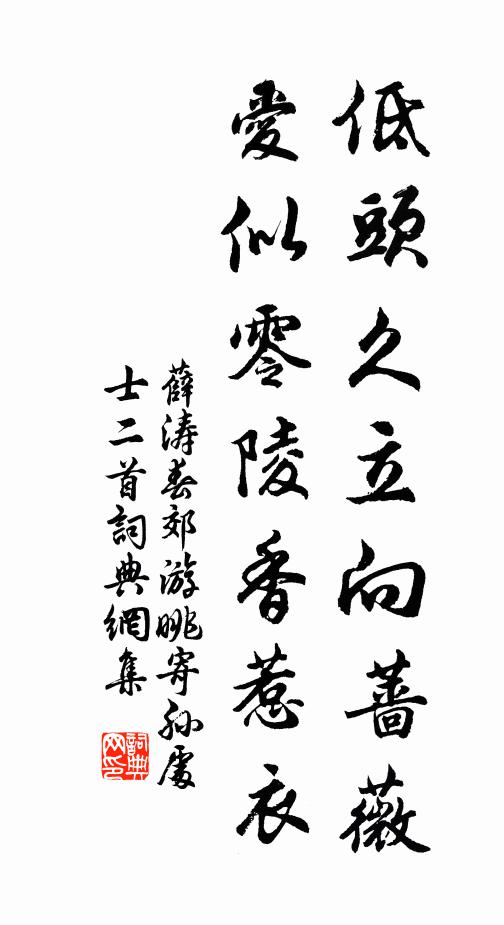 低頭久立向薔薇
愛似零陵香惹衣
薛涛春郊游眺寄孙處
士二首詞典網集
詞典
网印